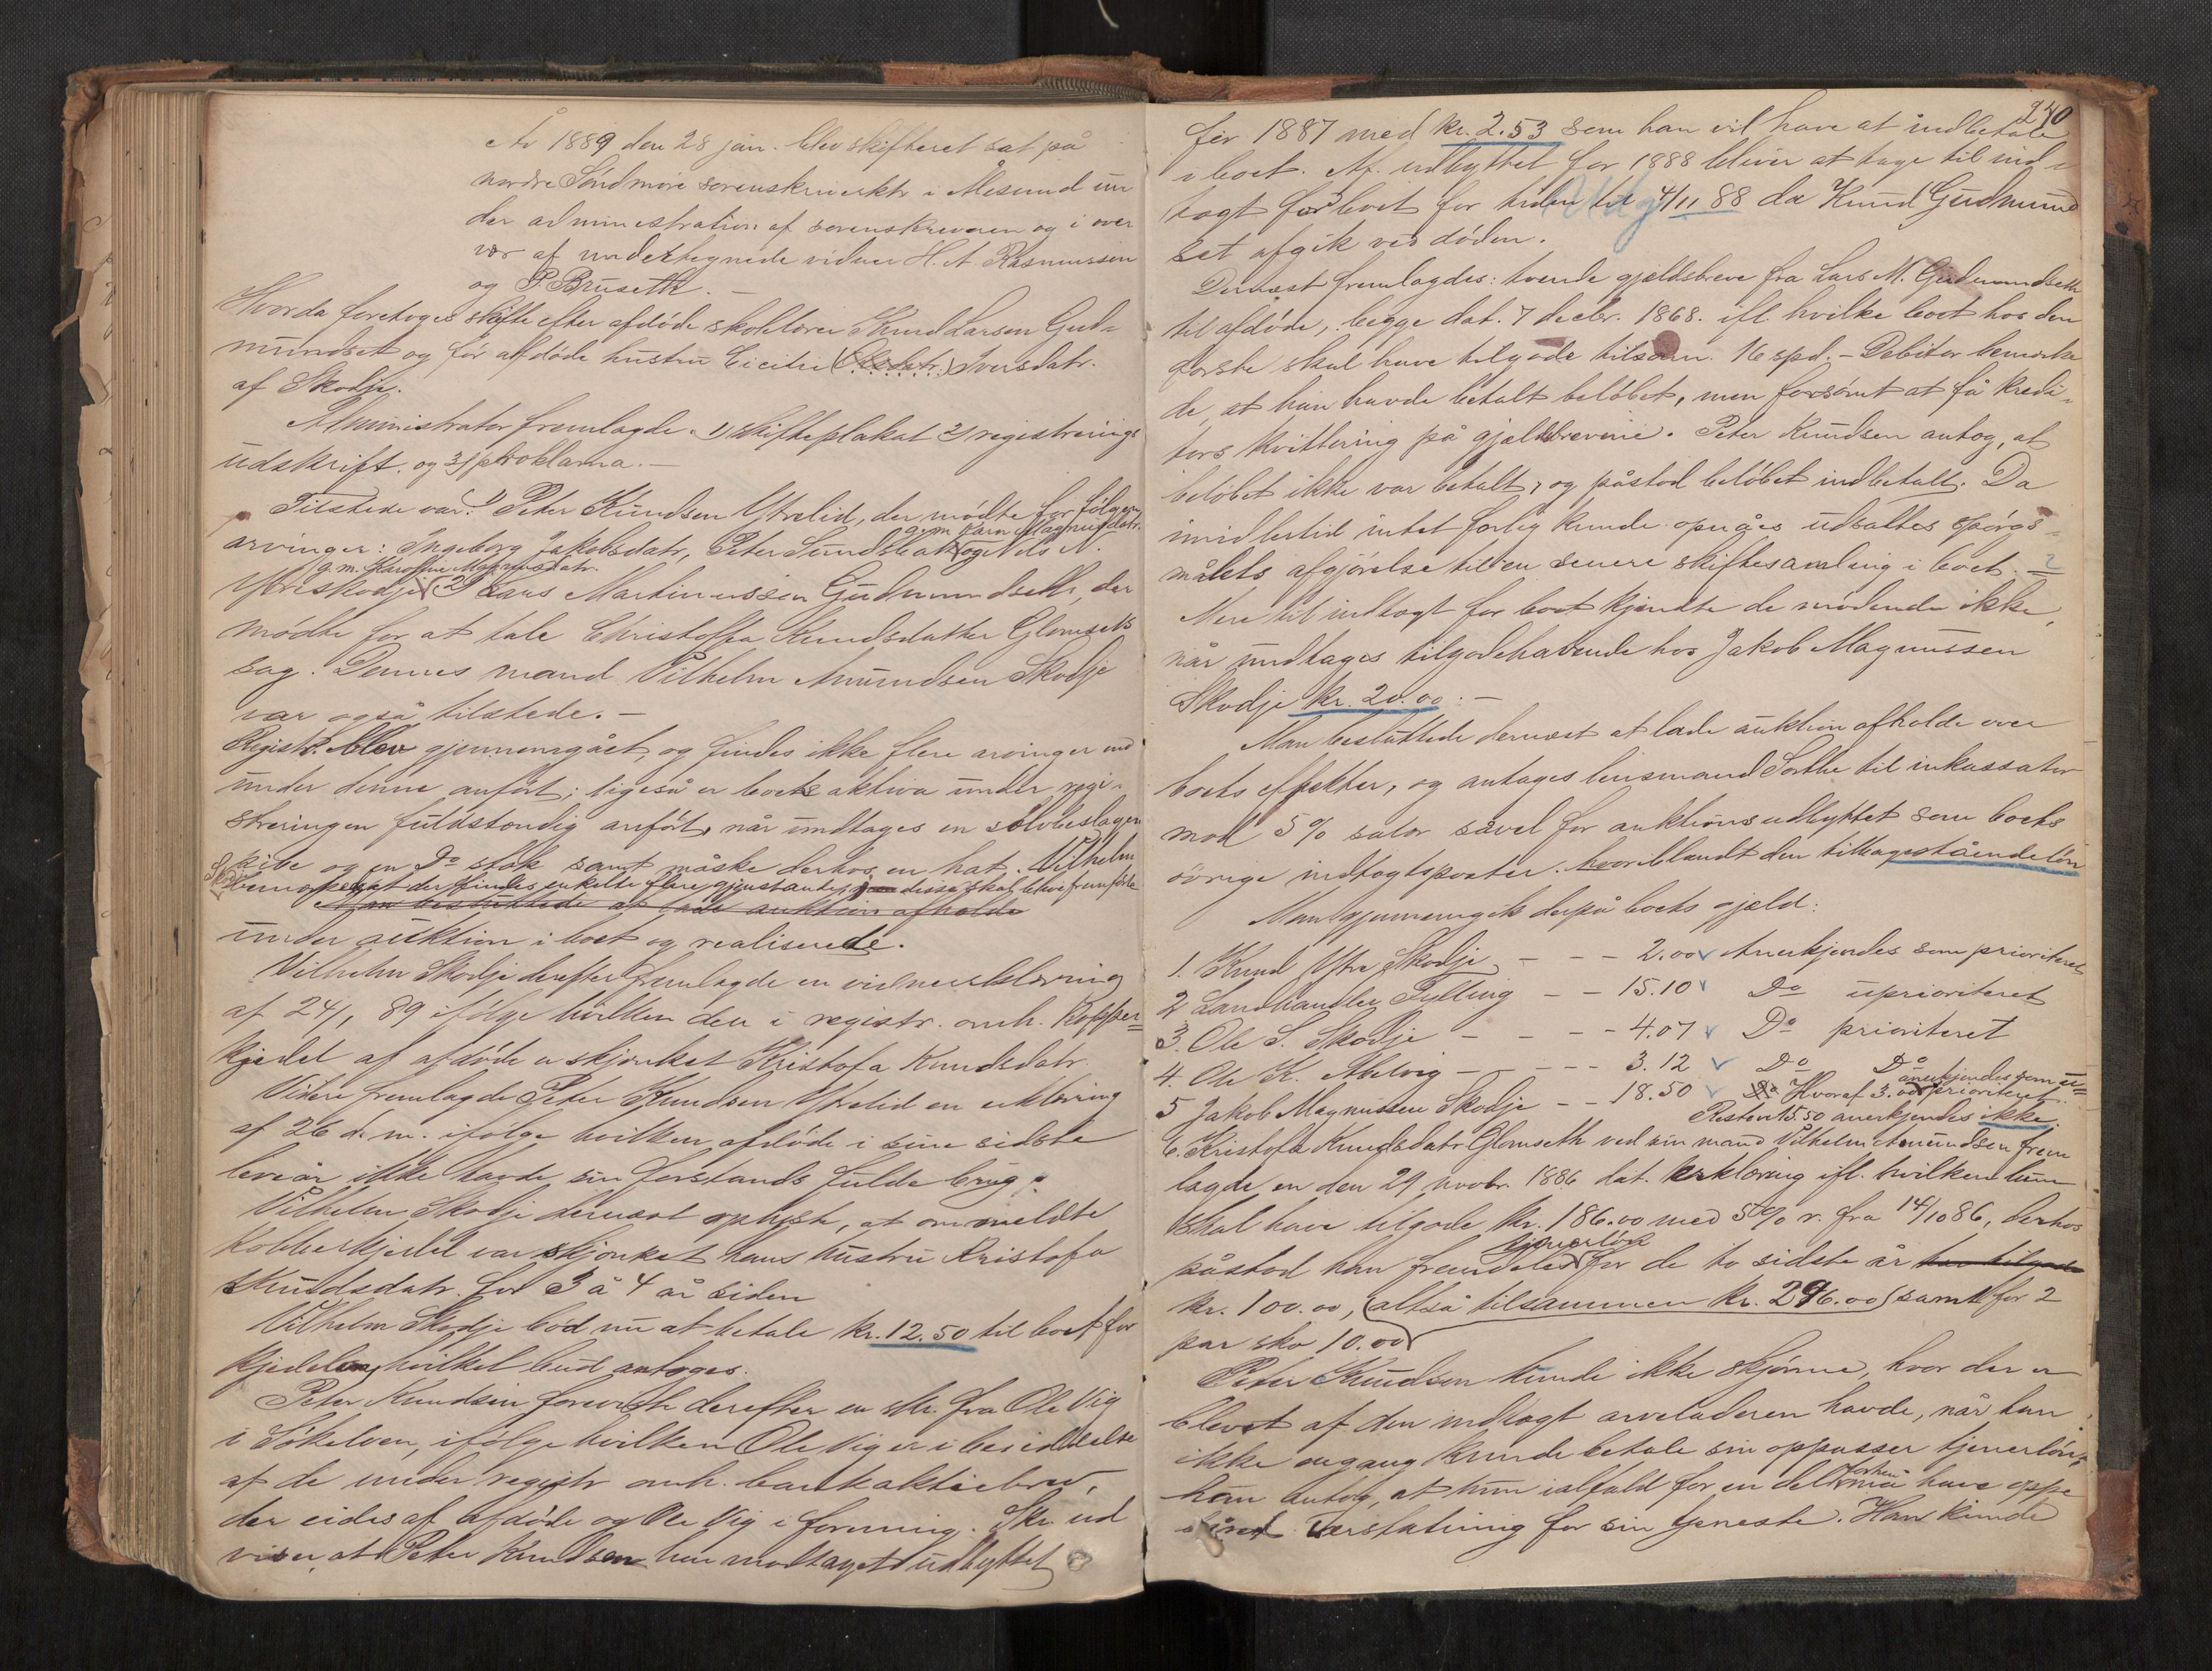 År 1889 den 28 jan. blev skifteret sat på
nordre Söndmöre sorenskriverktr i Ålesund un
der administration af sorenskriveren og i over
vær af undertegnede vidner H. A. Rasmussen
og P. Bruseth. —
Hvorda foretoges skifte efter afdöde skolelærer Knud Larsen Gud-
mundset og för afdöde hustru Cicilie (Olsdatr.) Iversdatr.
af Skodje.
Administrator fremlagde 1) skifteplakat 2) registrerings
udskrift. og 3) proklama. —
Tilstede var: 1) Peter Knudsen Ytrelid, der mödte for fölgen
g. m. Karn Magnusdatr.
arvinger: Ingeborg Jakobsdatr, Peter Knudsen og Nils N.
g. m. Karoline Magnusdatr.
Ytreskodje 2) Lars Martinussen Gudmundseth, der
mödte for at tale Christoffa Knudsdatter Glomsets
sag. Dennes mand Vilhelm Amundsen Skodje
var også tilstede. —
Registr. blev gjennemgået, og findes ikke flere arvinger end
under denne anfört; ligeså er boets aktiva under regi-
streringen fuldstændig anfört, når undtages en sölvbeslagen
pibe og en Do stok samt måske derhos en hat. Vilhelm
Skodje bemærket at der findes enkelte flere gjenstande, disse skal blive fremförte
Man besluttede at lade auktion afholde
under auktion i boet og realiserede.
Vilhelm Skodje derefter fremlagde en vidneerklæring
af 24/1 89 ifölge hvilken den i registr. omh. Kopper-
kjedel af afdöde er skjænket Kristofa Knudsdatr.
Videre fremlagde Peter Knudsen Ytrelid en erklæring
af 26 d. m. ifölge hvilken afdöde i sine sidste
leveår ikke havde sin forstands fulde brug.
Vilhelm Skodje dernæst oplyste, at ommeldte
Kobberkjedel var skjænket hans hustru Kristofa
Knudsdatr. for 3 à 4 år siden
Vilhelm Skodje böd nu at betale kr. 12.50 til boet for
kjedelen, hvilket bud antoges.
Peter Knudsen foreviste derefter en skr. fra Ole Vig
i Sökelven, ifölge hvilken Ole Vig er i besiddelse
af de under registr omh. bankaktiebrev,
der eides af afdöde og Ole Vig i forening. Skr. ud
viser, at Peter Knudsen har modtaget udbyttet
240
for 1887 med kr. 2.53 som han vil have at indbetale
i boet. Af udbyttet for 1888 bliver at tage til ind-
tægt for boet for tiden til 4/11 88 da Knud Gudmund
set afgik ved döden.
Dernæst fremlagdes: tvende gjældsbreve fra Lars M. Gudmundseth
til afdöde, begge dat. 7 decbr. 1868. ifl. hvilke boet hos den
förste skal have tilgode tilsam. 16 spd. — Debitor bemærke
de, at han havde betalt belöbet, men forsömt at få kredi-
tors kvittering på gjældsbrevene. Peter Knudsen antog, at
belöbet ikke var betalt, og påstod belöbet indbetalt. Da
imidlertid intet forlig kunde opnåes udsattes spörgs-
målets afgjörelse til en senere skiftesamling i boet.
Mere til indtægt for boet kjendte de mödende ikke,
når undtages tilgodehavende hos Jakob Magnussen
Skodje kr. 20.00. —
Man besluttede dernæst at lade auktion afholde over
boets effekter, og antages lensmand Sorthe til inkassator
mod 5% salær såvel for auktionsudbyttet som boets
övrige indtægtsposter. hvoriblandt den tilbagestående lön
Man gjennemgik derpå boets gjæld:
1. Knud Ytre Skodje — — — 2.00 Anerkjendes som prioriteret
2 Landhandler Fylling — — 15.10 Do uprioriteret
3. Ole S. Skodje — — — 4.07 Do prioriteret
4. Ole K. — — — 3.12 Do Do
5 Jakob Magnussen Skodje — — 18.50 Do Hvoraf 3.00 anerkjendes som u-
prioriteret.
Restent 15.50 anerkjendes ikke.
6. Kristofa Knudsdatr Glomseth ved sin mand Vilhelm Amundsen frem
lagde en den 29 novbr. 1886 dat. erklæring ifl. hvilken hun
skal have tilgode kr. 186.00 med 5% r. fra 14/10 86, derhos
tjenerlön
påstod han fremdeles for de to sidste år har tilgode
kr. 100.00, (altså tilsammen kr. 296.00) samt for 2
par sko 10.00
Peter Knudsen kunde ikke skjönne, hvor der er
blevet af den indtægt arveladeren havde, når han
ikke engang kunde betale sin oppasser tjenerlön,
han antog, at hun ialfald for en del må have oppe
båret erstatning for sin tjeneste. Han kunde